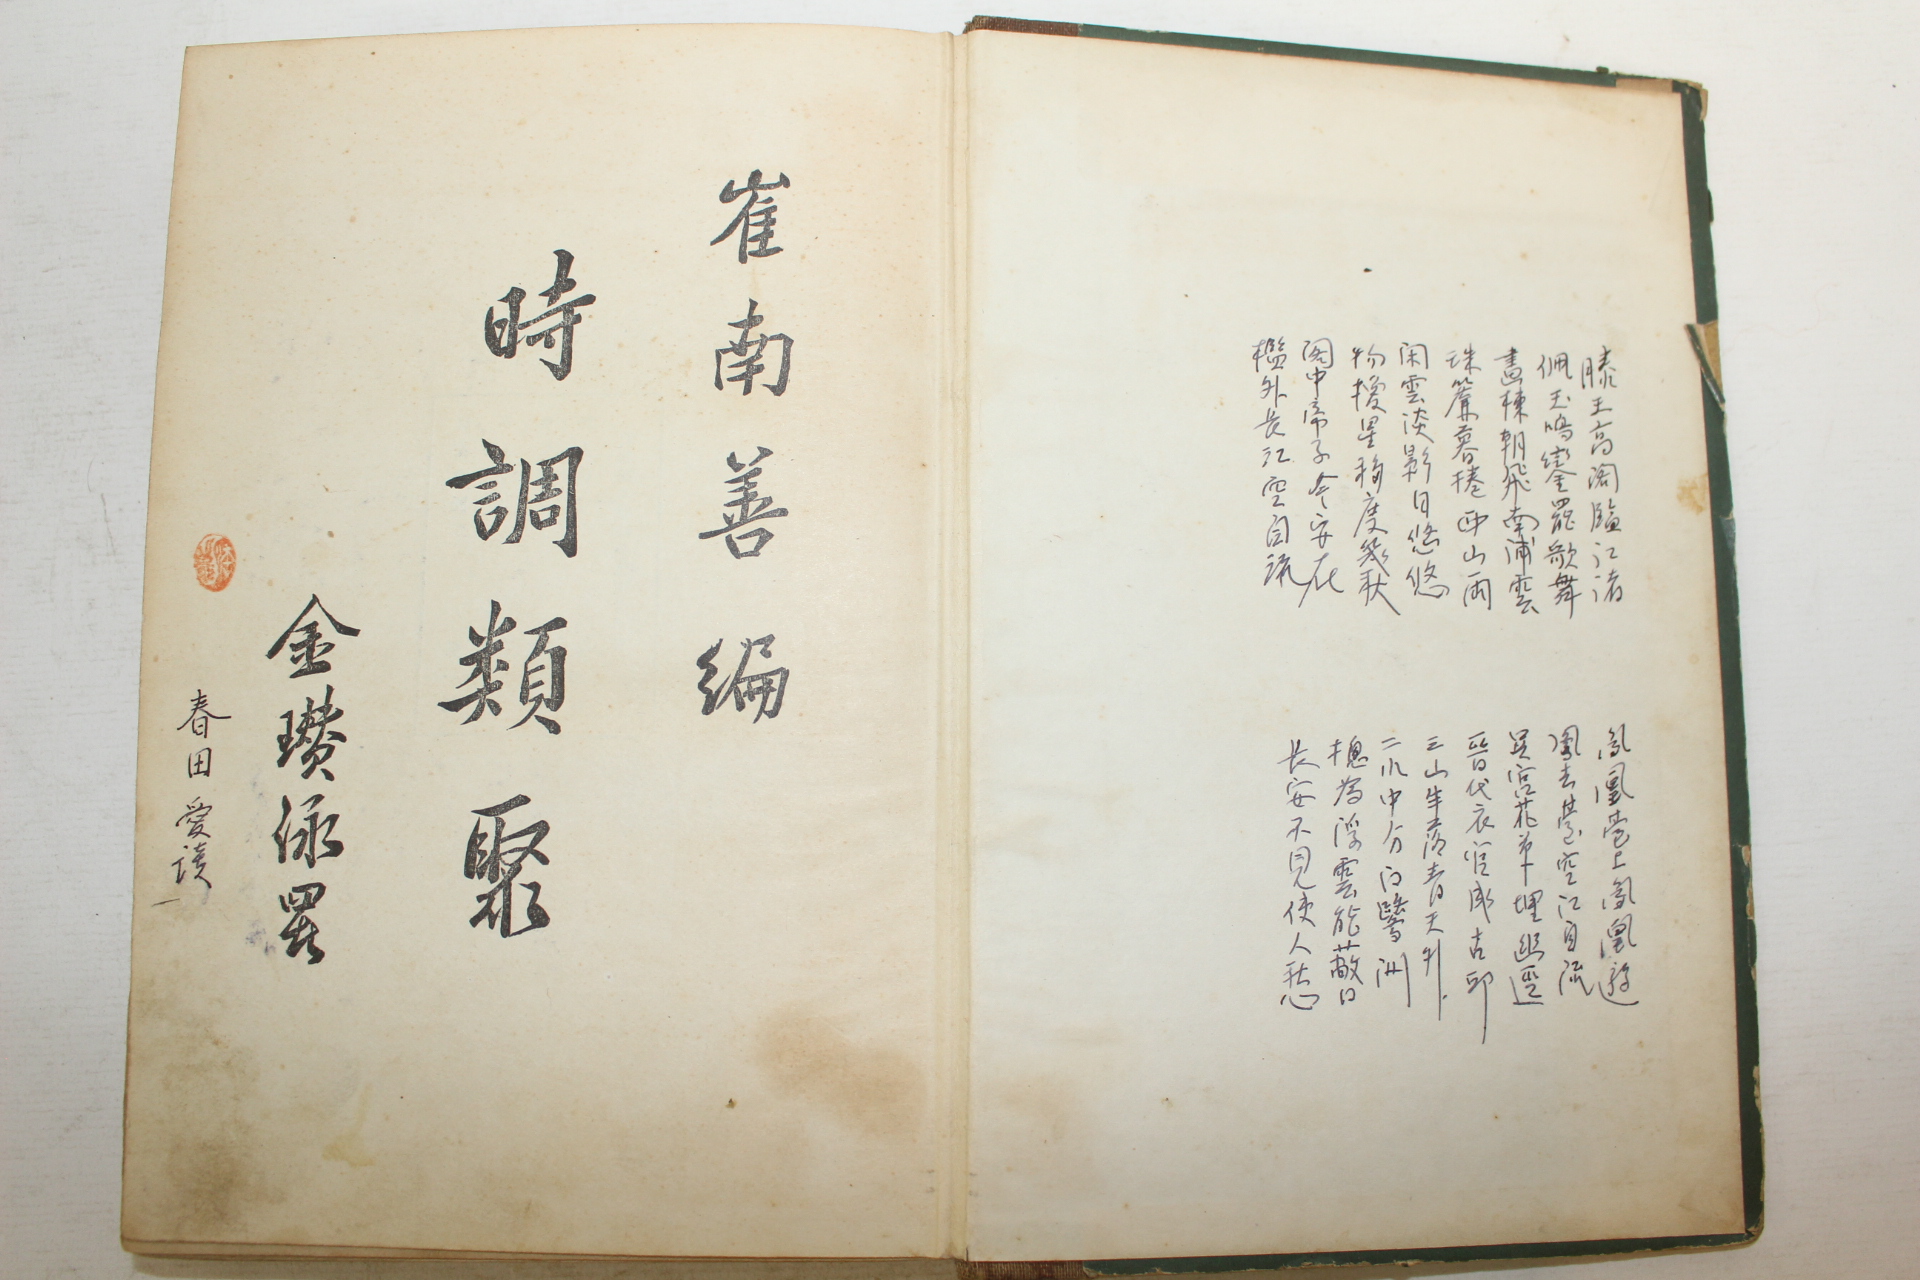 滕王高閣臨江渚
佩玉鳴鑾罷歌舞
畫棟朝飛南浦雲
珠簾暮捲西山雨
閑雲淡影日悠悠
物換星移度幾秋
閣中帝子今安在
檻外長江空自流
鳳凰臺上鳳凰遊
鳳去臺空江自流
吳宮花草埋幽逕
晉代衣冠成古邱
三山半落青天外
二水中分白鷺洲
摠為浮雲能蔽日
長安不見使人愁
崔南善編
時調類聚
金瓚泳
春田愛読